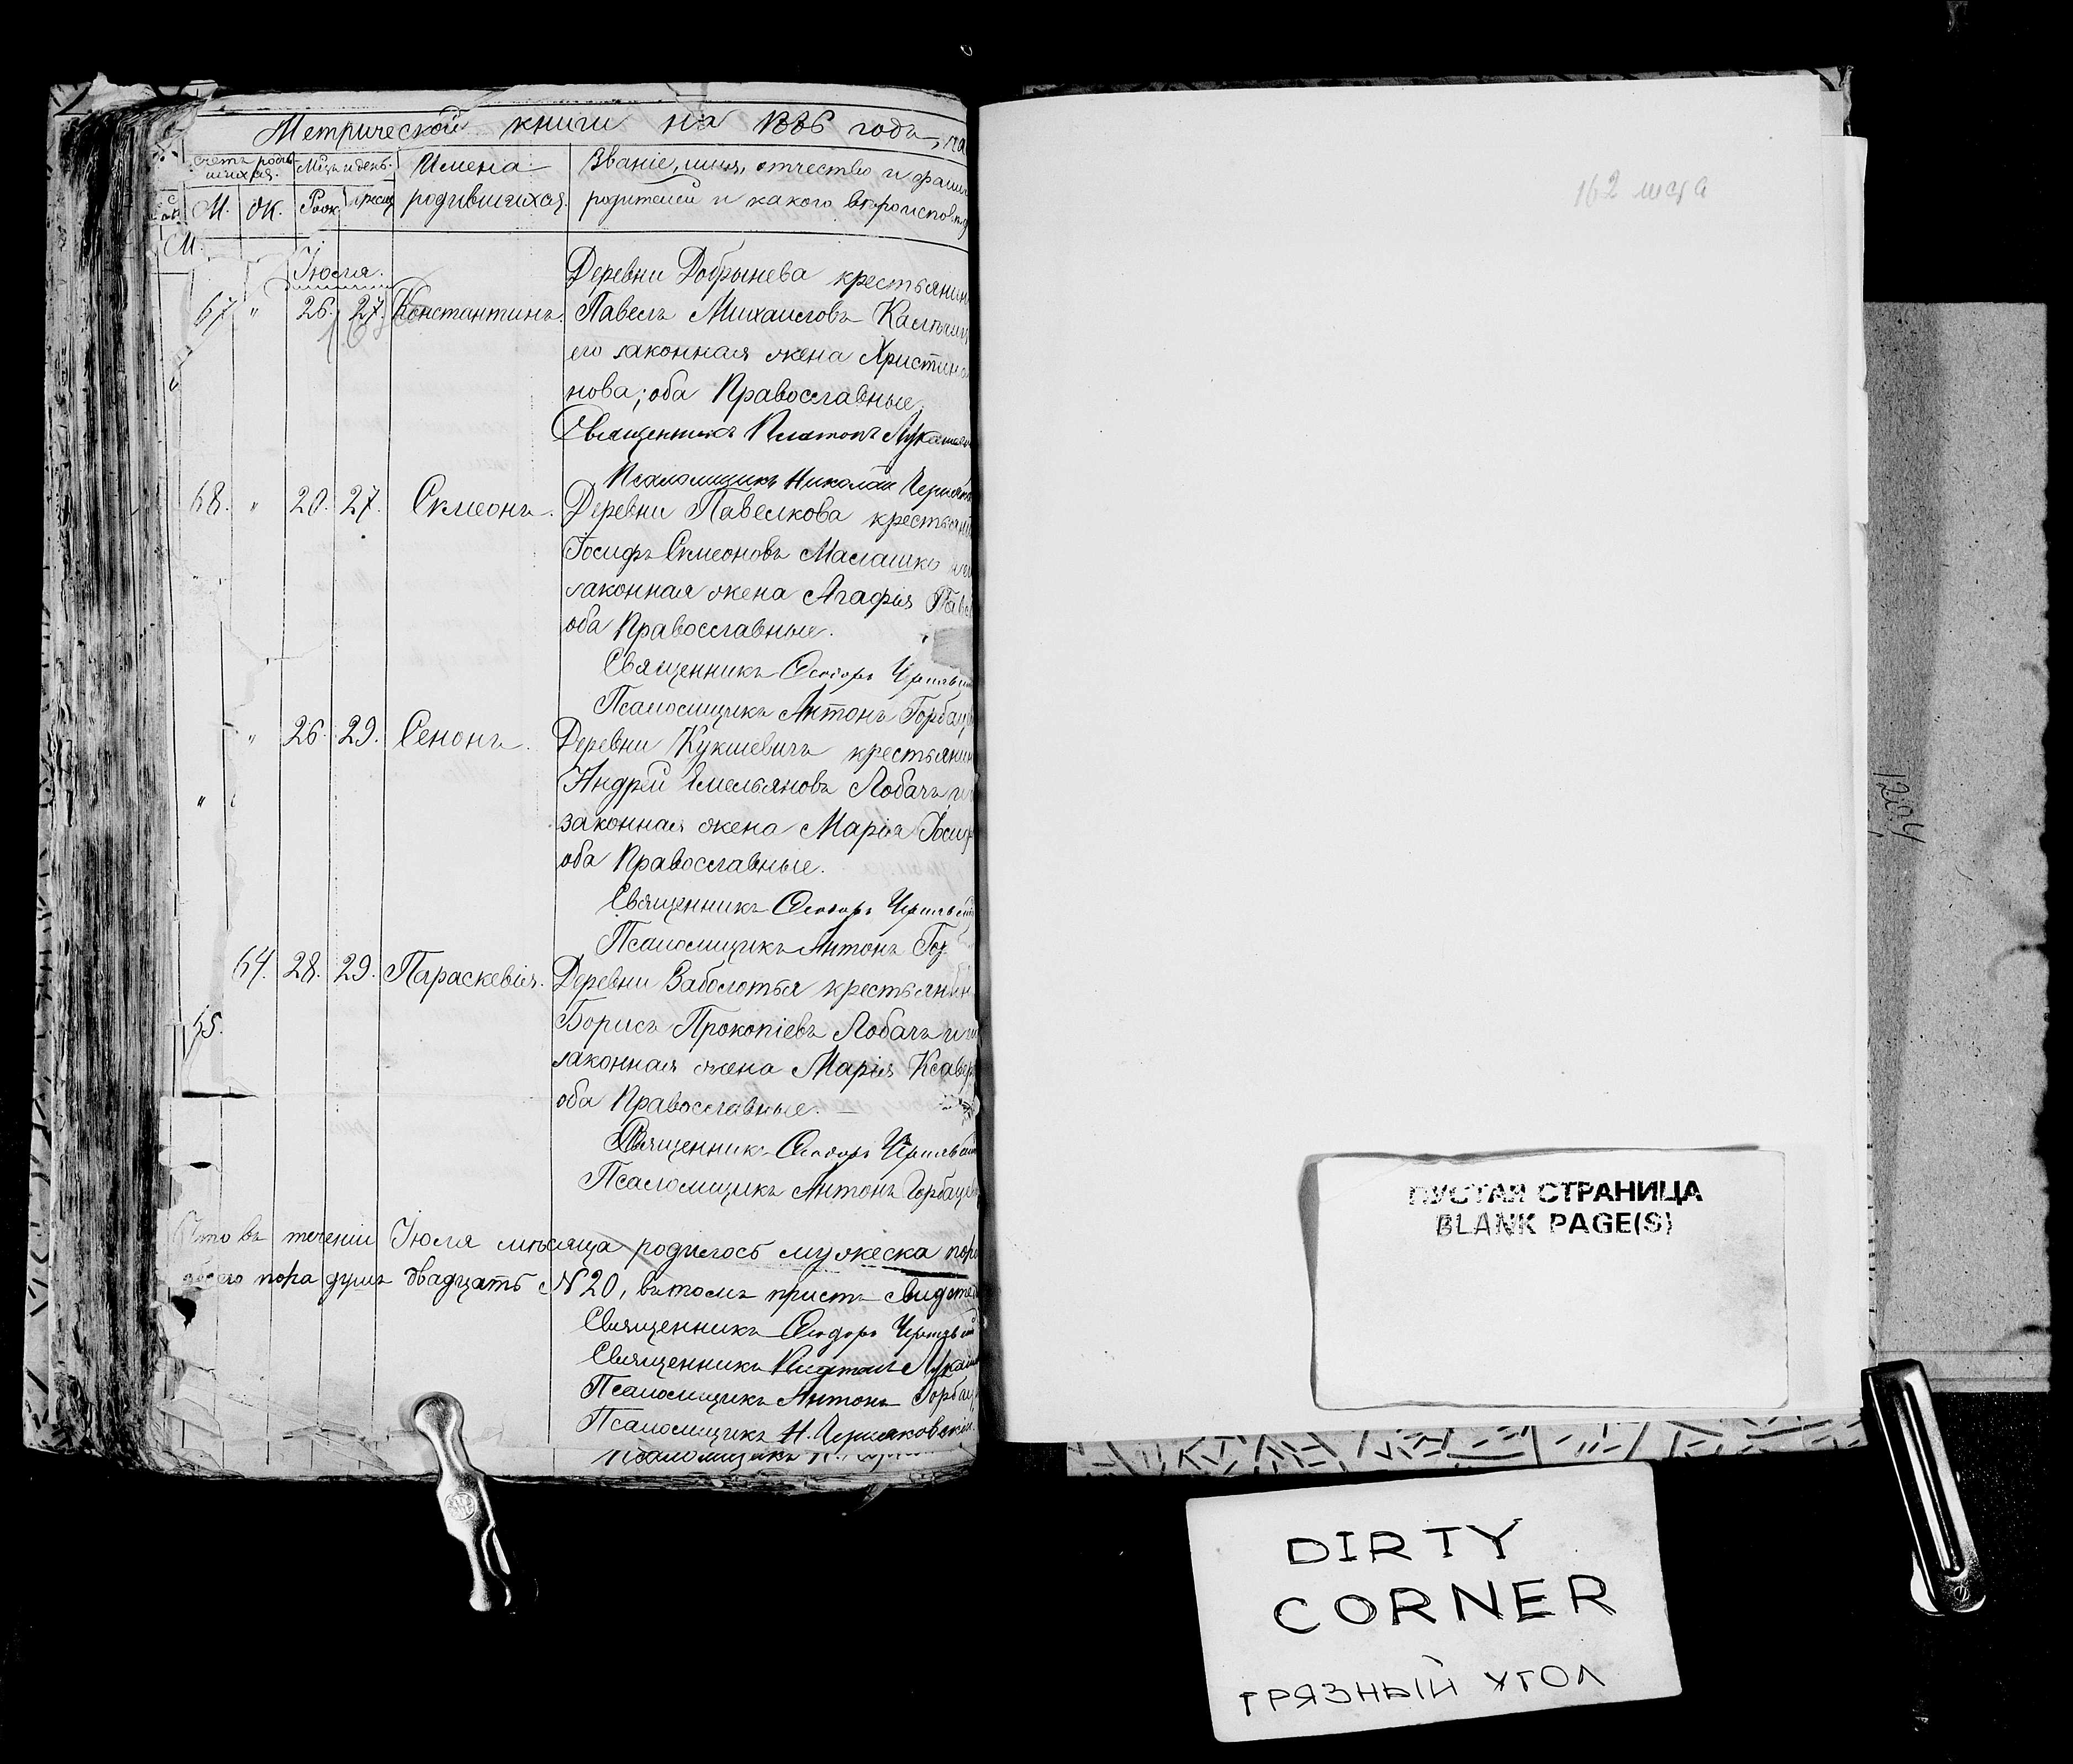 Метрической книги на 1886 годъ, ча
счетъ родившихся. Мѣсяцъ и день. Имена Званіе, имя, отчество и фами
М. Ж. Рожд. Крещ. родившихся. родителей и какого вѣроисповѣд
М.
Іюля.
Деревни Добрынева крестьянинъ
67 " 26. 27. Константинъ. Павелъ Михаиловъ
его законная жена Христина
нова; оба Православные.
Священникъ Платонъ Лукаше
Псаломщикъ Николай Черняк
68. " 20. 27. Симеонъ. Деревни Павелкова крестьяни
Іосифъ Симеоновъ Малашко и
законная жена Агафія Павл
оба Православные.
Священникъ Ѳеодоръ
Псаломщикъ Антонъ Горбаце
" 26. 29. Зенонъ. Деревни Кукшевичъ крестьянин
Андрей Емельяновъ Лобачъ и
"
законная жена Марія Іосиф
оба Православные.
Священникъ Ѳеодоръ
Псаломщикъ Антонъ Гор
64. 28. 29. Параскевія. Деревни Заболотья крестьянин
55. Борисъ Прокопіевъ Лобачъ и
законная жена Марія Ксавер
оба Православные.
Священникъ Ѳеодоръ
Псаломщикъ Антонъ Горбаце
Что въ теченіи Іюля мѣсяца родилось мужеска пол
обоего пола душъ двадцать №20, въ томъ
Священникъ Ѳеодоръ
Священникъ Платонъ Лукаш
Псаломщикъ Антонъ Горбац
Псаломщикъ Н. Черняковскій.
Псаломщикъ Н.
162
1204
ПУСТАЯ СТРАНИЦА
BLANK PAGE(S)
DIRTY
CORNER
ГРЯЗНЫЙ УГОЛ